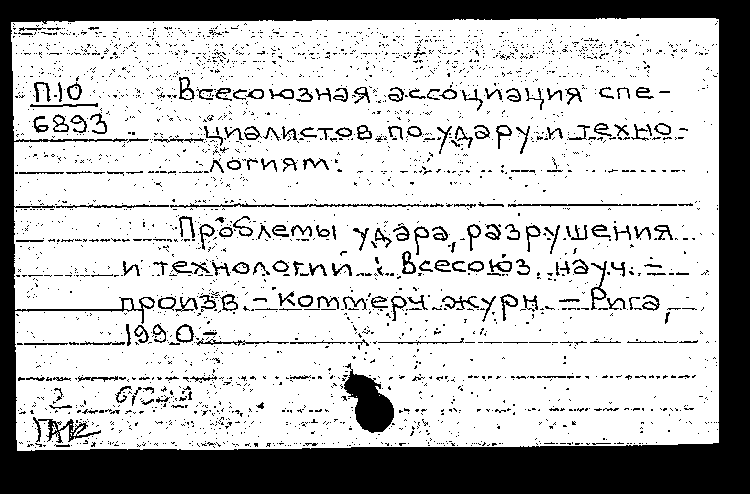 П10 Всесоюзная ассоциация спе-
6893 циалистов по удару и техно-
логиям.
Проблемы удара, разрушения
и технологии : Всесоюз. науч. -
произв. - коммерч. журн. — Рига,
1990 -
2
ГАК